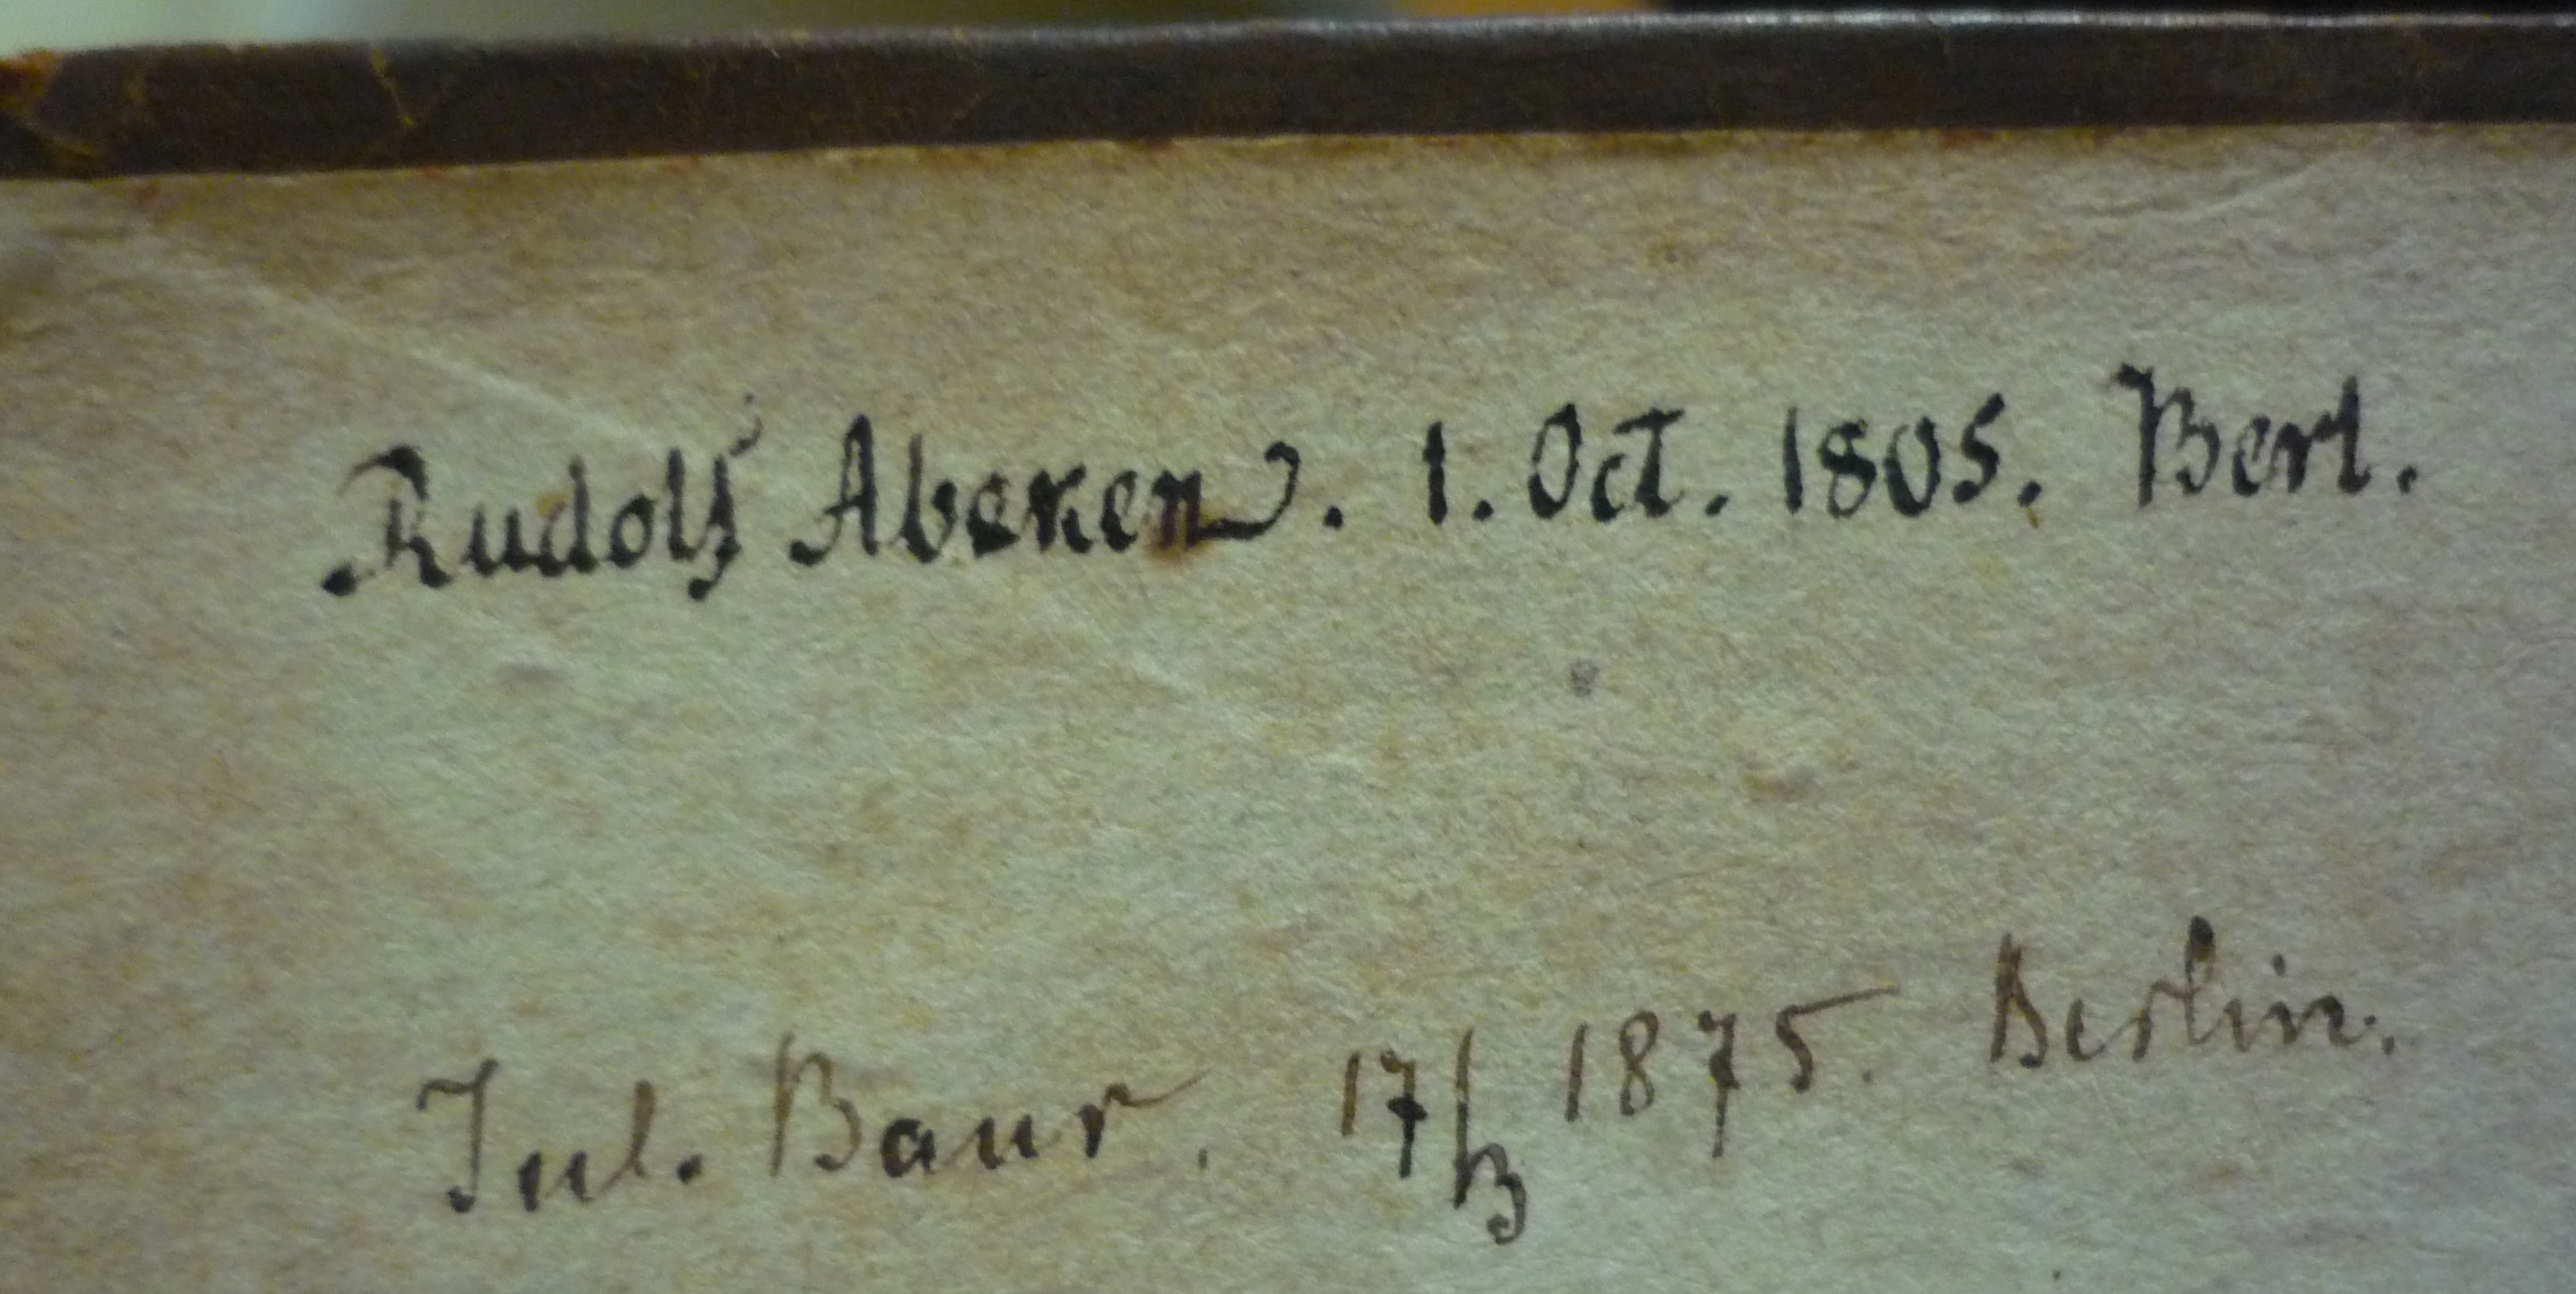 Rudolf Abeken. 1. Oct. 1805. Berl.
Jul. Baur. 17/3 1875. Berlin.